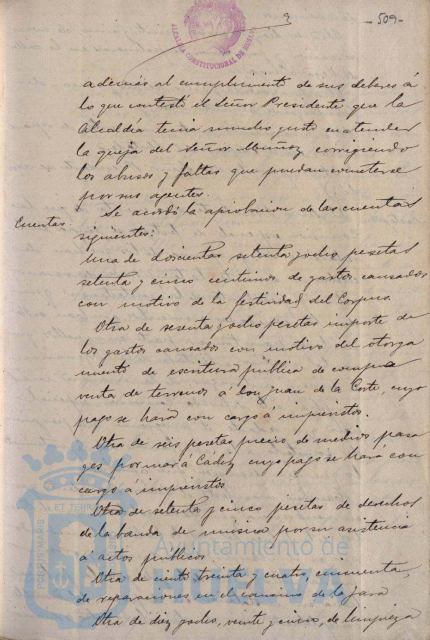 -509-
ALCALDIA CONSTITUCIONAL DE
además al cumplimiento de sus deberes á
lo que contestó el Señor Presidente que la
Alcaldía tenia mucho gusto en atender
la queja del Señor Muñoz, corrigiendo
los abusos y faltas que puedan cometerse
por sus agentes.
Cuentas
Se acordó la aprobacion de las cuentas
siguientes:
Una de doscientas setenta y ocho pesetas
setenta y cinco centimos de gastos causados
con motivo de la festividad del Corpus.
Otra de sesenta y ocho pesetas importe de
los gastos causados con motivo del otorga
miento de escritura pública de compra
venta de terrenos á Don Juan de la Corte, cuyo
pago se hará con cargo á imprevistos.
Otra de seis pesetas precio de medios pasa
ges por mar á Cadiz cuyo pago se hara con
cargo á imprevistos
Otra de setenta y cinco pesetas de derechos
de la banda de música por su asistencia
á actos públicos
Otra de ciento treinta y cuatro, cincuenta,
de reparaciones en el camino de la
Otra de diez y ocho, veinte y cinco, de limpieza
Ayuntamiento de